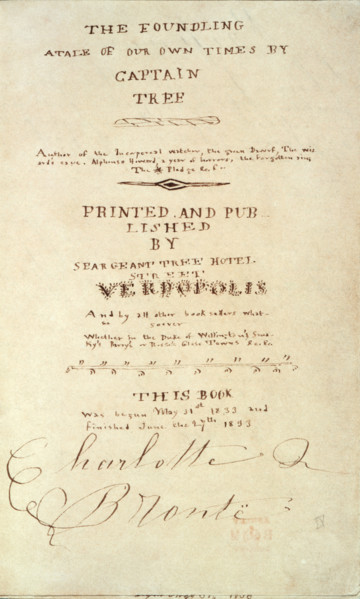 THE FOUNDLING
A TALE OF OUR OWN TIMES BY
CAPTAIN
TREE
Author of the Incorporeal watcher, the green Dwarf, The wiz
ards cave, Alphonso Howard, a year of horrors, the forgotten ring
The Pledge &c. &c
PRINTED AND PUB
LISHED
BY
SEARGEANT TREE HOTEL
STREET
VERDOPOLIS
And by all other booksellers what-
soever
Whether in the Duke of Wellington's
Glass Town &c. &c.
THIS BOOK
was begun May 31st 1833 and
finished June the 27th 1833
Charlotte
Brontë